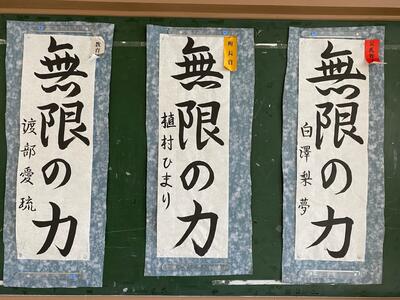 無限の力
白澤梨夢
町長賞
無限の力
植村ひまり
無限の力
渡部愛琉